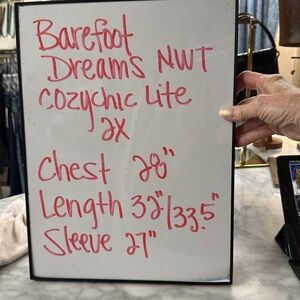 Barefoot
Dreams NWT
Cozychic Lite
2X
Chest 28"
Length 32"/33.5"
Sleeve 27"